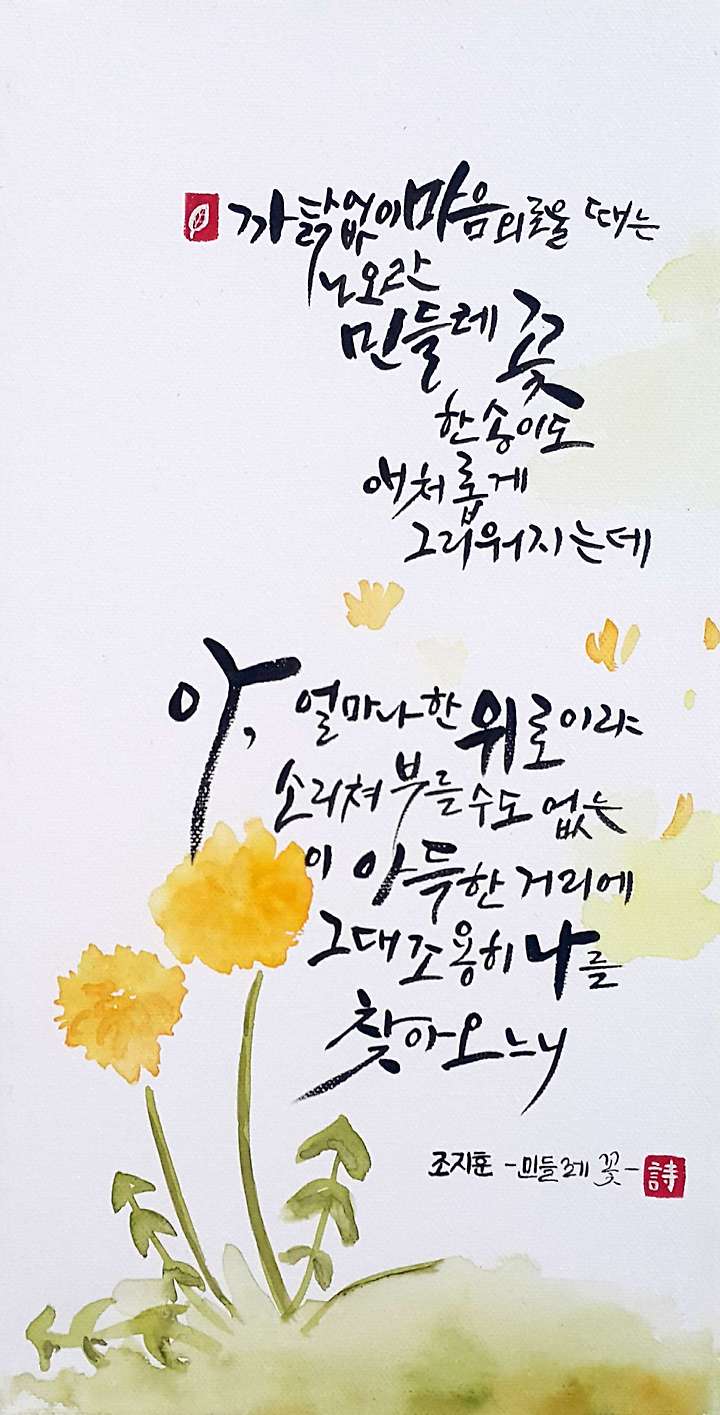 까닭없이 마음 외로울 때는
노오란
민들레 꽃
한 송이도
애처롭게
그리워지는데
아, 얼마나한 위로이랴
소리쳐 부를 수도 없는
이 아득한 거리에
그대 조용히 나를
찾아오느니
조지훈 -민들레 꽃- 詩